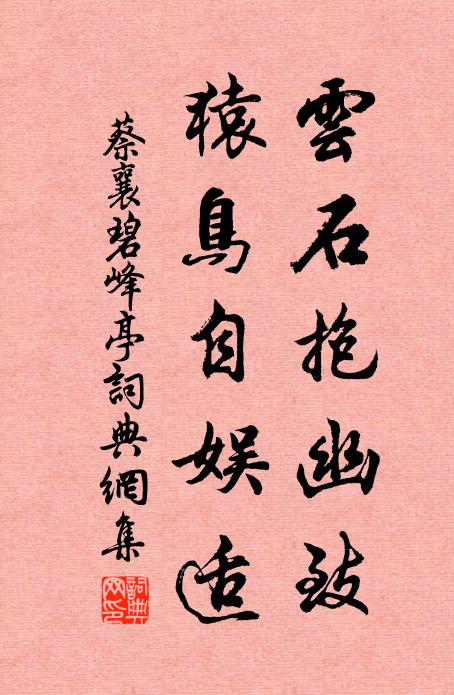 雲石抱幽致
猿鳥自娛适
蔡襄碧峰亭詞典網集
詞典网印